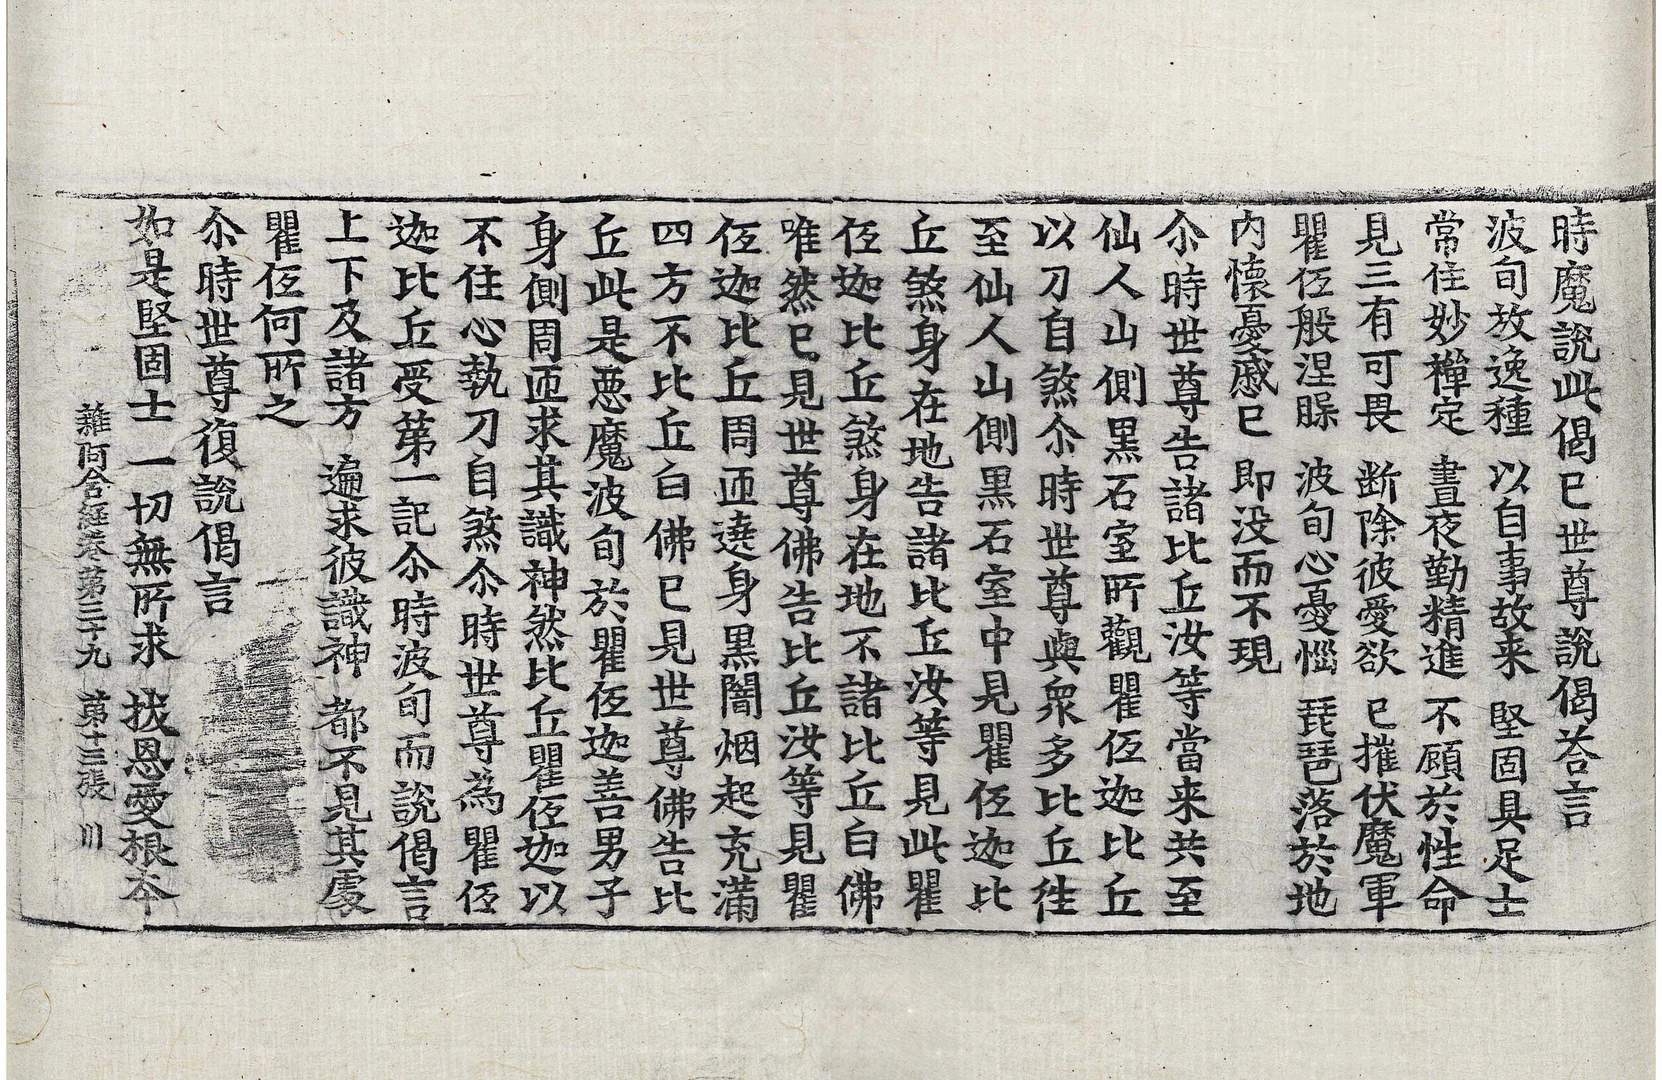 時魔說此偈已世尊說偈荅言
波旬放逸種　以自事故来　堅固具足士
常住妙禪定　晝夜勤精進　不顧於性命
見三有可畏　断除彼愛欲　已摧伏魔軍
瞿伍般涅睬　波旬心憂惱　琵琶落於地
内懐憂慼已　即没而不現
尒時世尊告諸比丘汝等當来共至
仙人山側黒石室所觀瞿伍迦比丘
以刀自煞尒時世尊與衆多比丘徃
至仙人山側黒石室中見瞿伍迦比
丘煞身在地告諸比丘汝等見此瞿
伍迦比丘煞身在地不諸比丘白佛
唯然已見世尊佛告比丘汝等見瞿
伍迦比丘周迊遶身黒闇烟起充滿
四方不比丘白佛已見世尊佛告比
丘此是惡魔波旬於瞿伍迦善男子
身側周迊求其識神然比丘瞿伍迦以
不住心執刀自煞尒時世尊為瞿伍
迦比丘受第一記尒時波旬而說偈言
上下及諸方　遍求彼識神　都不見其處
瞿伍何所之
尒時世尊復說偈言
如是堅固士　一切無所求　拔恩愛根夲
雜阿含經卷第三十九　第十三張　川